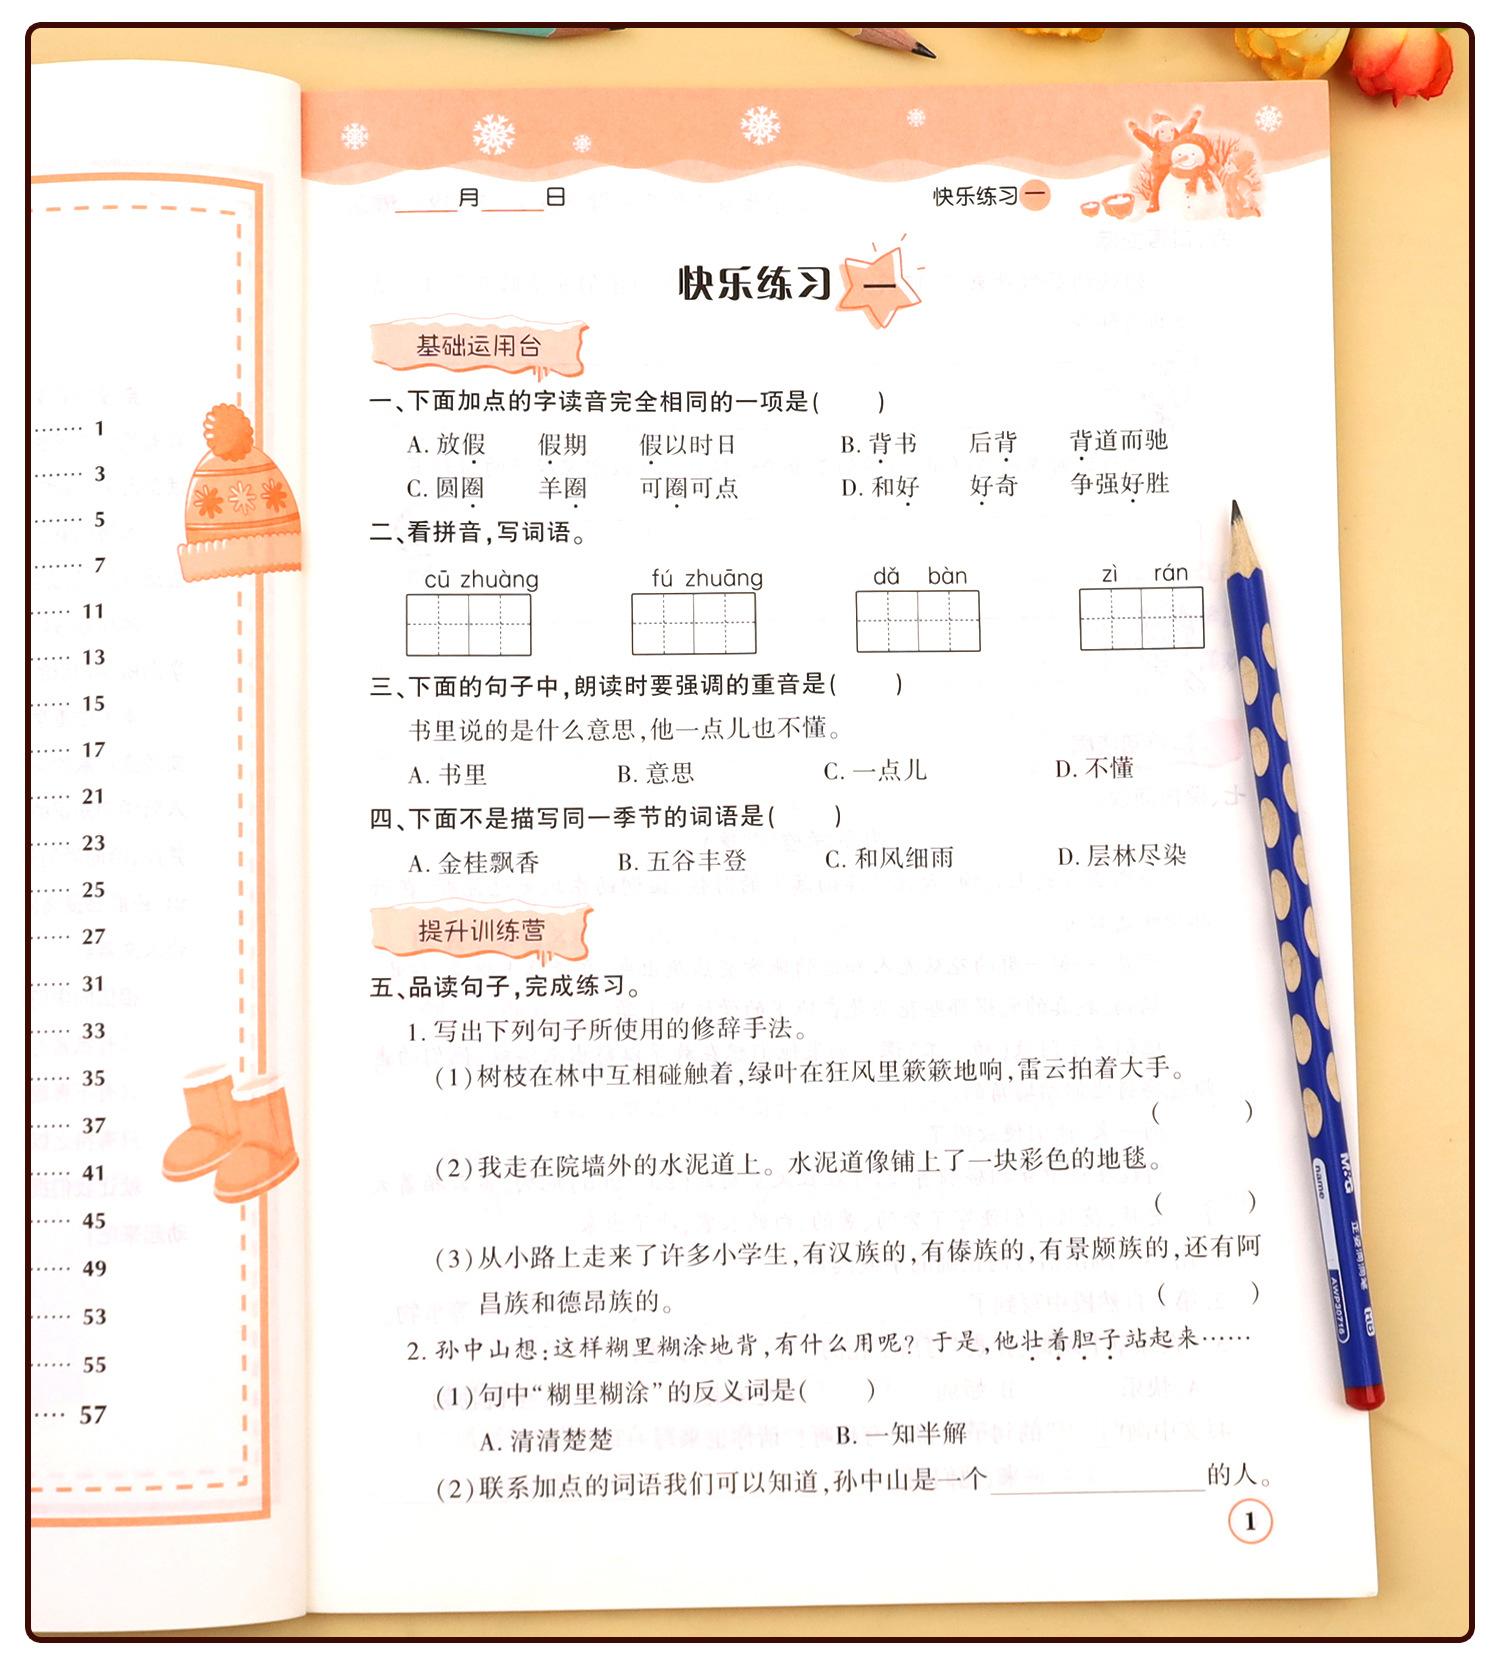 1
3
5
7
11
13
15
17
21
23
25
27
31
33
35
37
41
45
49
53
55
57
月 日
快乐练习 一
快乐练习 一
基础运用台
一、下面加点的字读音完全相同的一项是( )
A. 放假 假期 假以时日 B. 背书 后背 背道而驰
C. 圆圈 羊圈 可圈可点 D. 和好 好奇 争强好胜
二、看拼音,写词语。
cū zhuàng fú zhuāng dǎ bàn zì rán
三、下面的句子中,朗读时要强调的重音是( )
书里说的是什么意思,他一点儿也不懂。
A. 书里 B. 意思 C. 一点儿 D. 不懂
四、下面不是描写同一季节的词语是( )
A. 金桂飘香 B. 五谷丰登 C. 和风细雨 D. 层林尽染
提升训练营
五、品读句子,完成练习。
1. 写出下列句子所使用的修辞手法。
(1)树枝在林中互相碰触着,绿叶在狂风里簌簌地响,雷云拍着大手。
( )
(2)我走在院墙外的水泥道上。水泥道像铺上了一块彩色的地毯。
( )
(3)从小路上走来了许多小学生,有汉族的,有傣族的,有景颇族的,还有阿
昌族和德昂族的。 ( )
2. 孙中山想:这样糊里糊涂地背,有什么用呢?于是,他壮着胆子站起来……
(1)句中“糊里糊涂”的反义词是( )
A. 清清楚楚 B. 一知半解
(2)联系加点的词语我们可以知道,孙中山是一个 的人。
1
M&G
name
AWP30716
HB